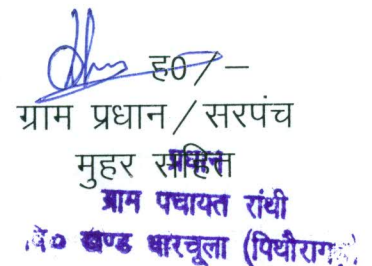 ह0/-
ग्राम प्रधान/सरपंच
मुहर सहित
प्रधान
ग्राम पंचायत रांथी
वि० खण्ड धारचूला (पिथौराग